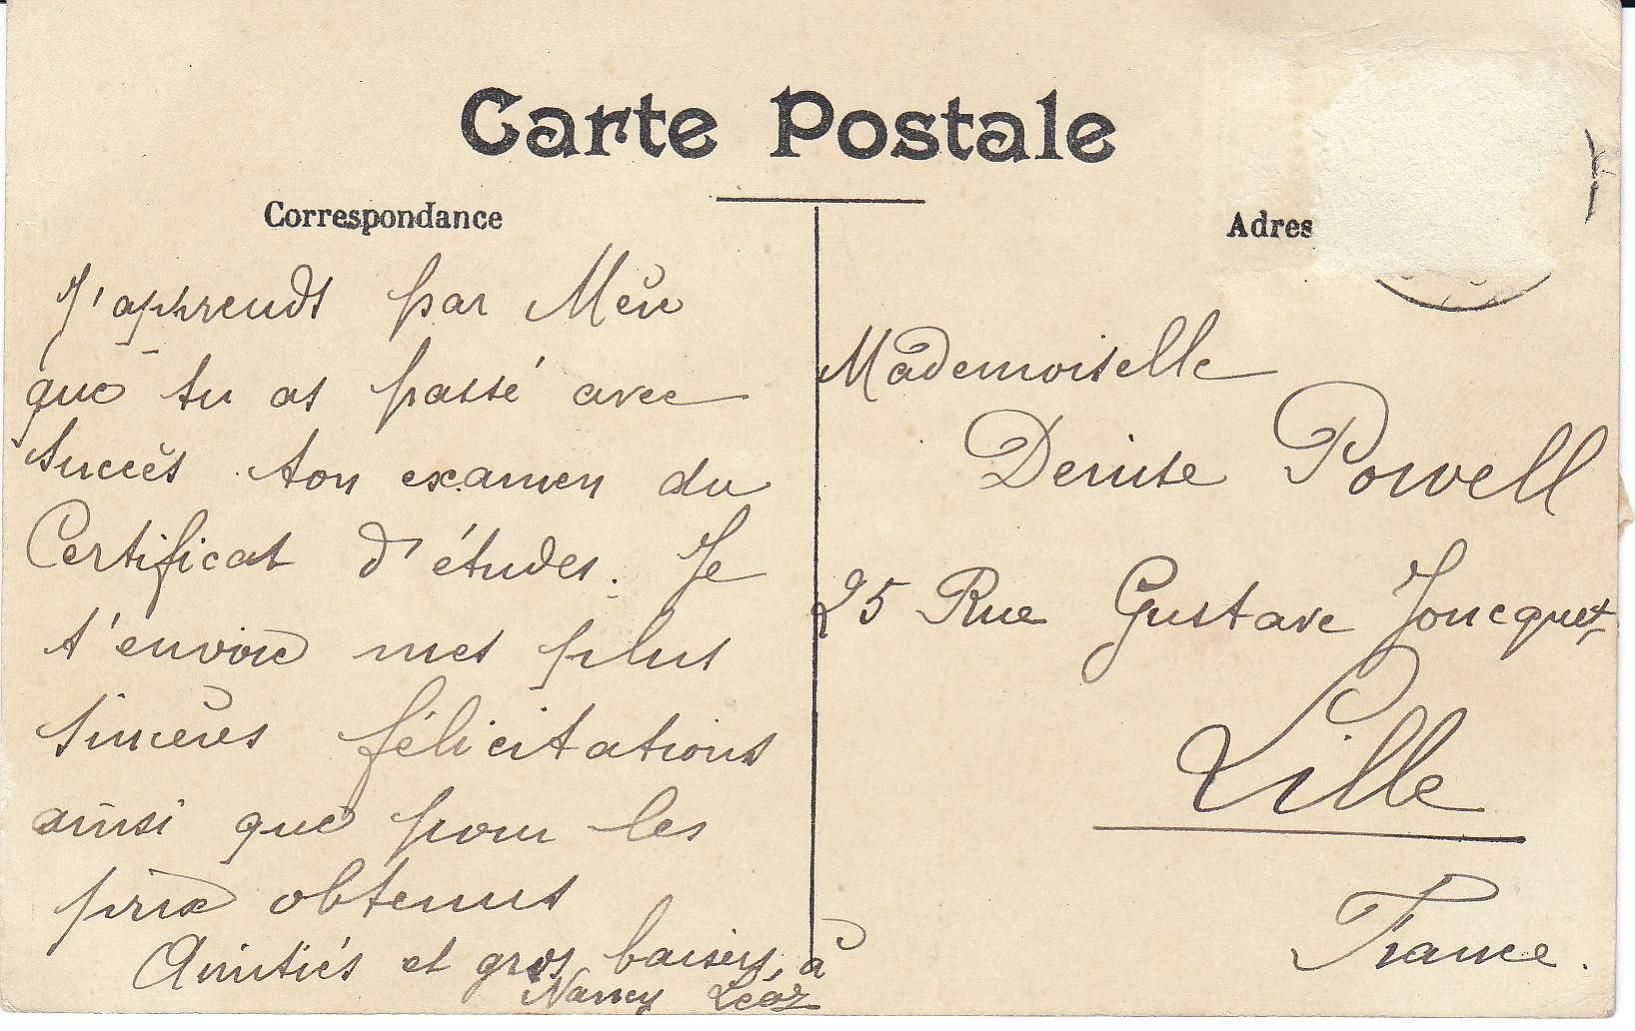 Carte Postale
Correspondance
Adres
J'apprends par
que tu as passé avec
succès ton examen du
Certificat d'études. Je
t'envoie mes plus
sincères félicitations
ainsi que pour les
prix obtenus
Amitiés et gros baisers à
Nancy
Mademoiselle
Denise Powell
25 Rue Gustave Joncquet
Lille
France.